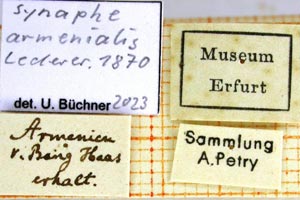 Synaphe
armenialis
Lederer, 1870
det. U. Büchner 2023
Museum
Erfurt
Armenien
v. Bang Haas
erhalt.
Sammlung
A.Petry